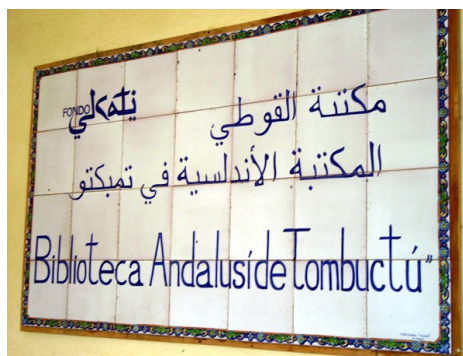 FONDO Kati مكتبة القوطي
المكتبة الأندلسية في تمبكتو
Biblioteca Andalusí de Tombuctú"